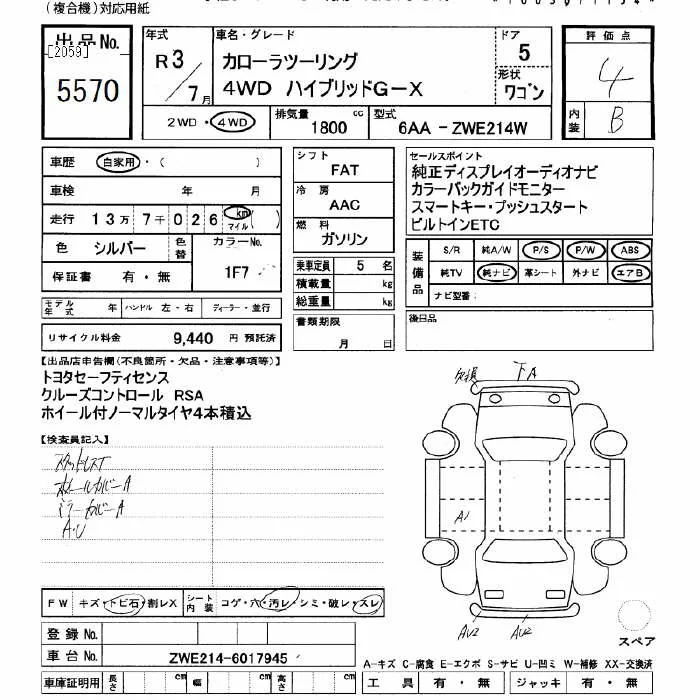 (複合機)対応用紙
出品No.
[2059]
5570
年式
R3/7月
車名・グレード
カローラツーリング
4WD ハイブリッドG-X
ドア
5
形状
ワゴン
評価点
4
内装
B
2WD・4WD
排気量
1800 cc
型式
6AA-ZWE214W
車歴 自家用・( )
車検 年 月
走行 13万7千026 km マイル ( )
色 シルバー 色替 カラーNo.
1F7
保証書 有・無
モデル年式 年 ハンドル 左・右 ディーラー・並行
リサイクル料金 9,440 円 預託済
シフト
FAT
冷房
AAC
燃料
ガソリン
乗車定員 5 名
積載量 kg
総重量 kg
書類期限
月 日
セールスポイント
純正ディスプレイオーディオナビ
カラーバックガイドモニター
スマートキー・プッシュスタート
ビルトインETC
装備品
S/R 純A/W P/S P/W ABS
純TV 純ナビ 革シート 外ナビ エアB
ナビ型番:
後日品
【出品店申告欄(不良箇所・欠品・注意事項等)】
トヨタセーフティセンス
クルーズコントロール RSA
ホイール付ノーマルタイヤ4本積込
【検査員記入】
スタッドレス
ホイールカバーA
ミラーカバーA
A・U
欠損
下A
A1
AU2
AU2
スペア
FW キズ・トビ石・割レX シート内装 コゲ・穴・汚レ・シミ・破レ・スレ
登録No.
車台No. ZWE214-6017945
車庫証明用 長さ cm 幅 cm 高さ cm
A-キズ C-腐食 E-エクボ S-サビ U-凹ミ W-補修 XX-交換済
工具 有・無 ジャッキ 有・無